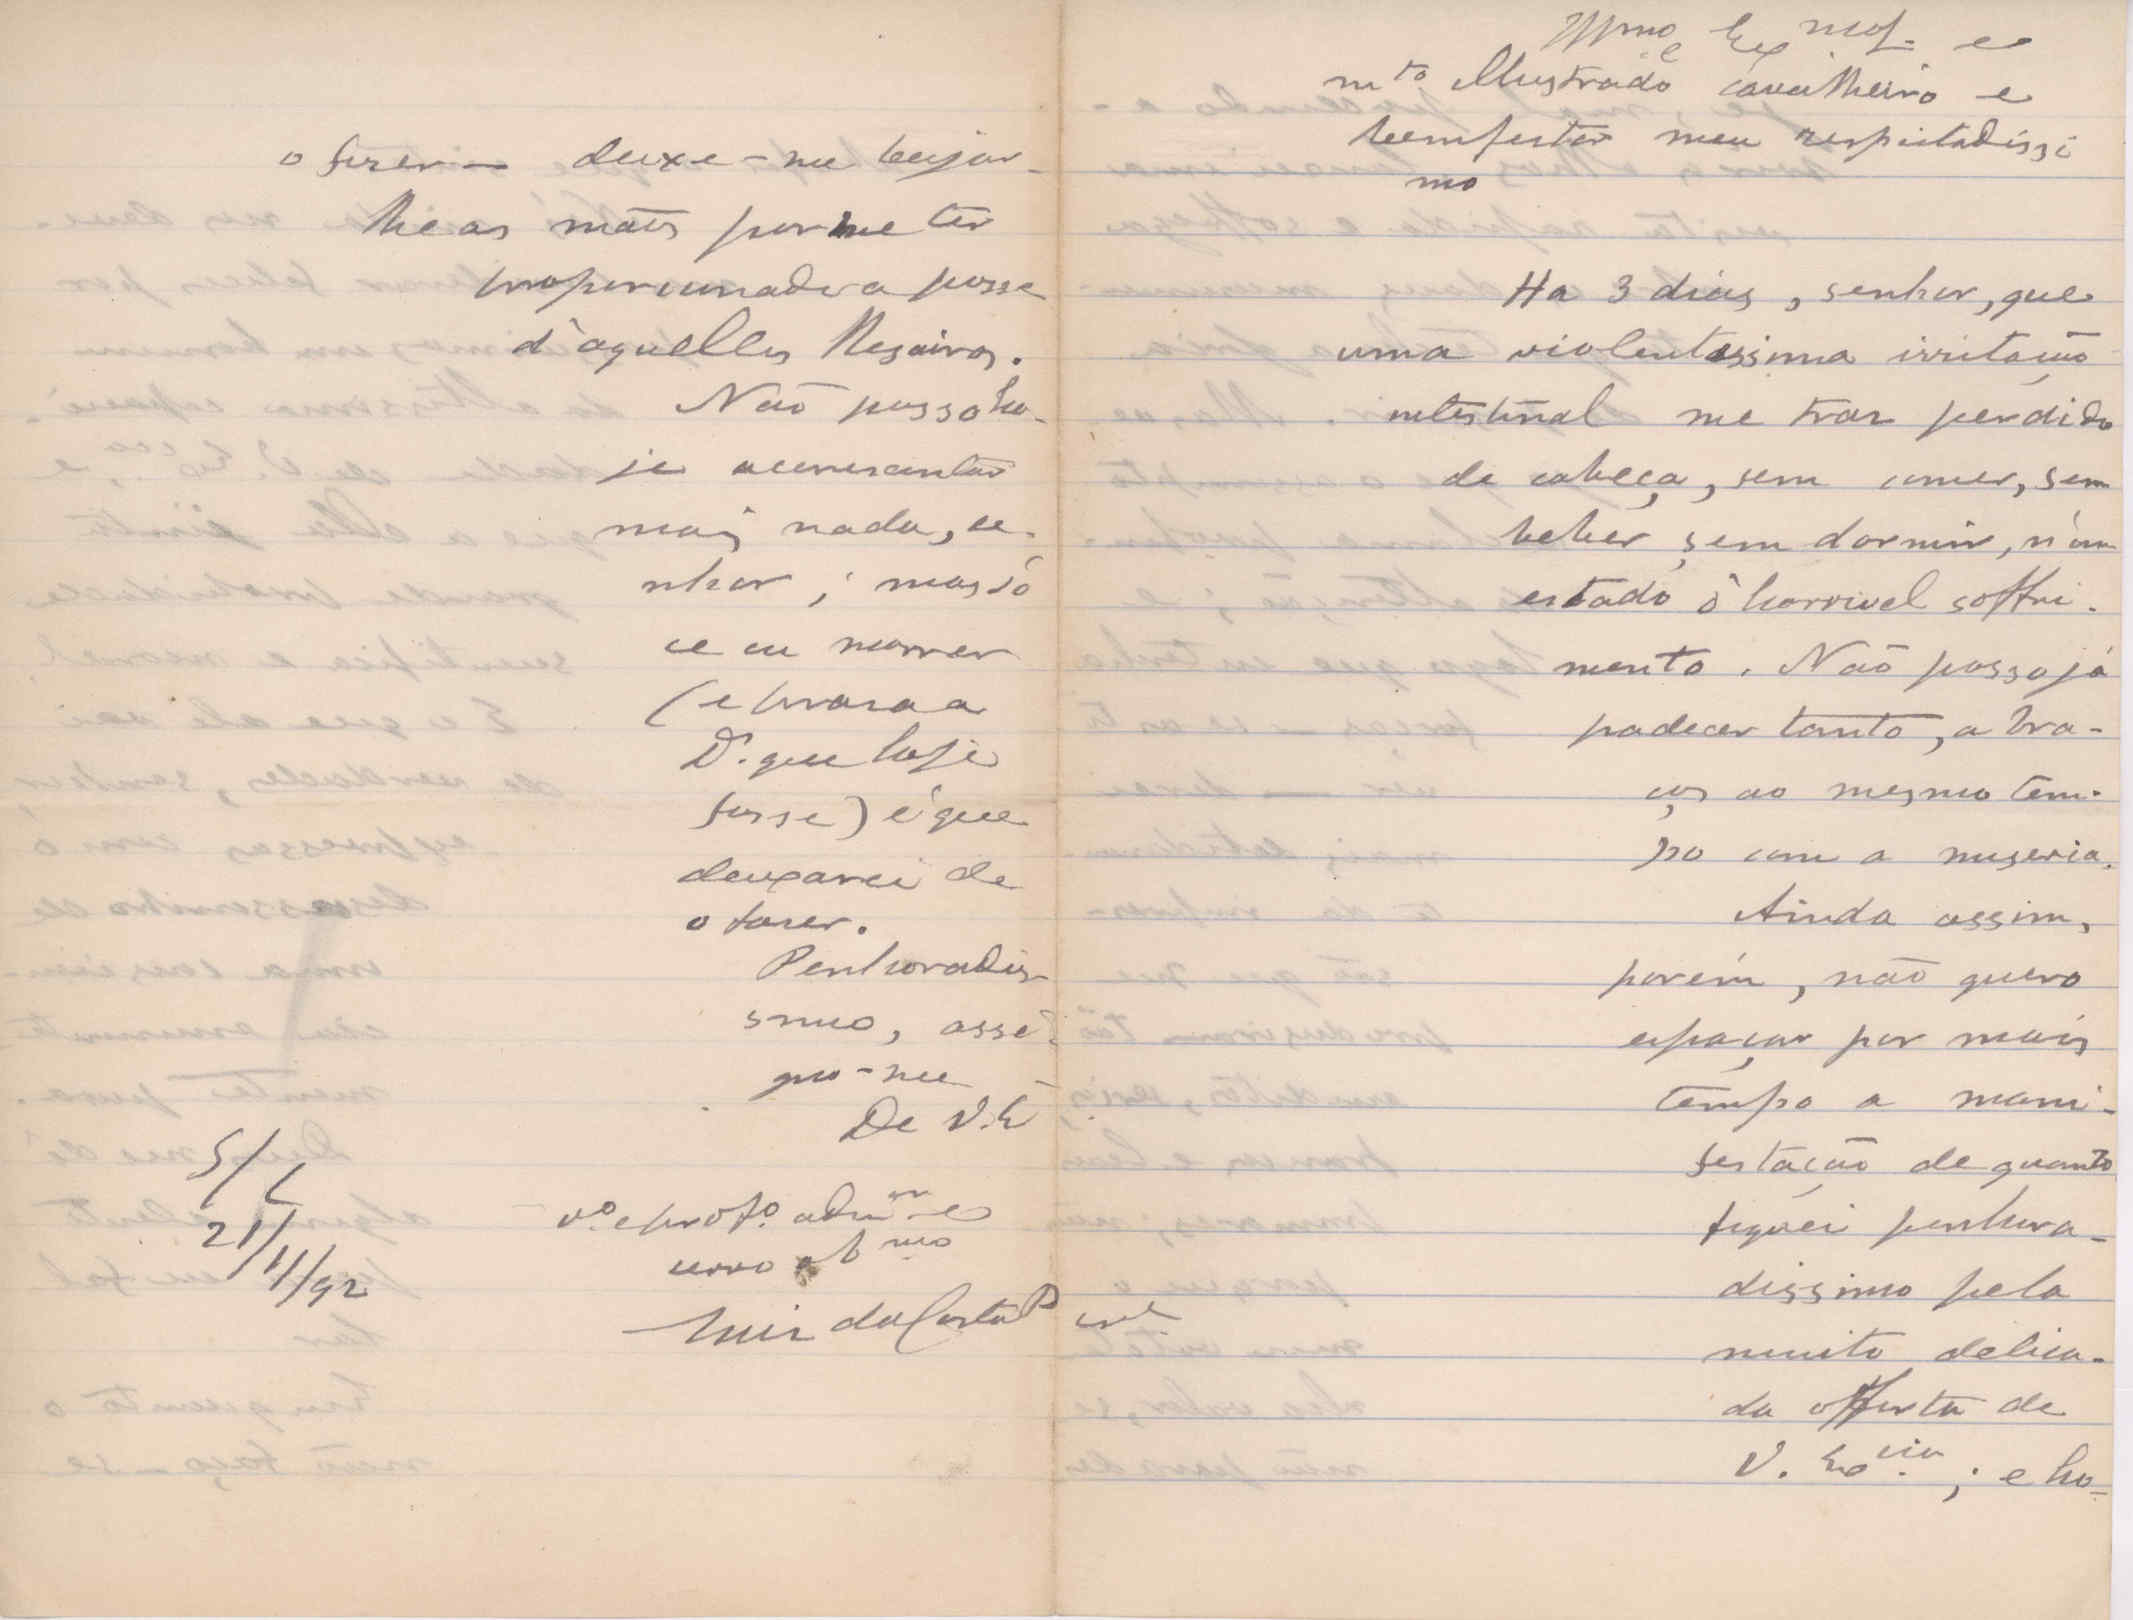 Illmo e Exmo. e
mto Illustrado cavalheiro e
bemfeitor meu respeitadissi
mo
Ha 3 dias, senhor, que
uma violentissima irritação
intestinal me traz perdido
de cabeça, sem comer, sem
beber, sem dormir, n'um
estado d'horrivel soffri-
mento. Não posso já
padecer tanto, a bra-
ços ao mesmo tem-
po com a miseria.
Ainda assim,
porém, não quero
espaçar por mais
tempo a mani-
festação de quanto
fiquei penhora-
dissimo pela
muito delica-
da offerta de
V. Excia.; e ho-
o fizer — deixe-me beijar-
lhe as mãos por me ter
proporcionado a posse
d'aquelles Thesoiros.
Não posso ho-
je accrescentar
mais nada, se-
nhor; mas só
se eu morrer
(e prouvera a
D. que hoje
fosse) é que
deixarei de
o fazer.
Penhoradis-
simo, assi-
gno-me
De V. E
vor. e profo. admor e
servo obmo
Luiz da Costa P
S/C
21/11/92